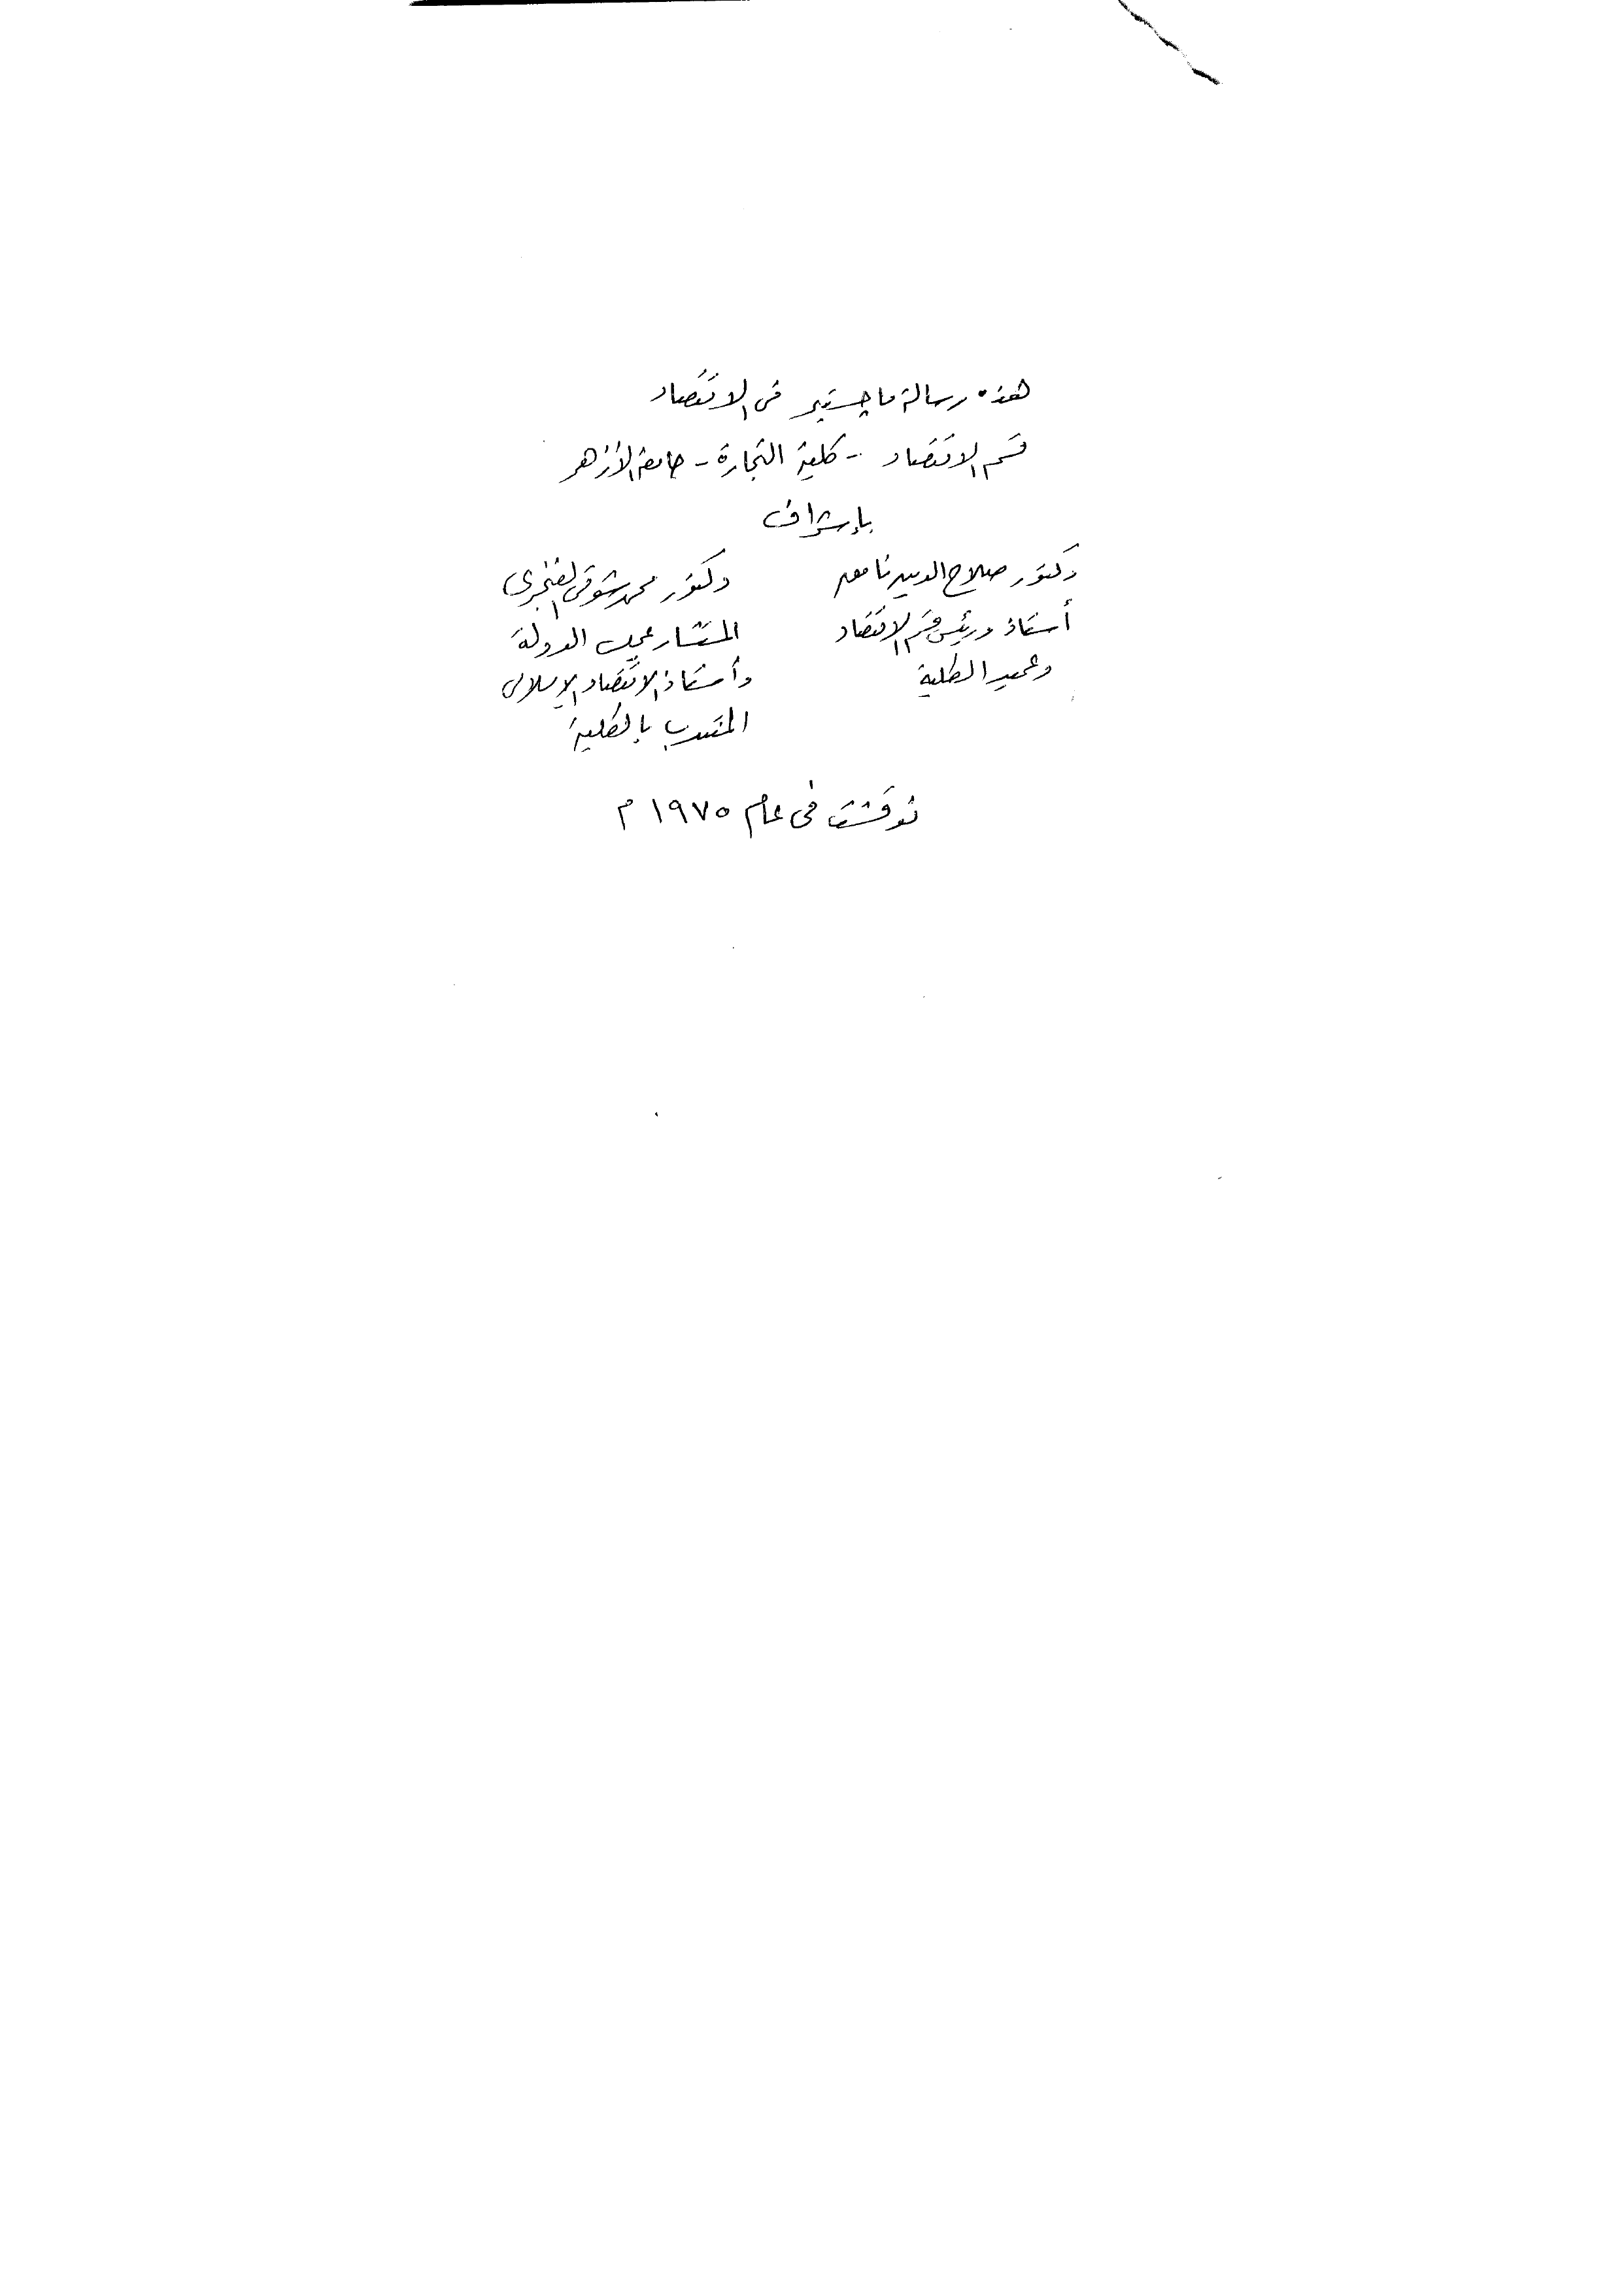 هذه رسالة ماجستير فى الاقتصاد
قسم الاقتصاد - كلية التجارة - جامعة الأزهر
بإشراف
دكتور صلاح الدين نامق
أستاذ ورئيس قسم الاقتصاد
وعميد الكلية
دكتور محمد شوقى الفنجرى
المستشار بمجلس الدولة
وأستاذ الاقتصاد الإسلامى
المنتدب بالكلية
نوقشت فى عام ١٩٧٥ م